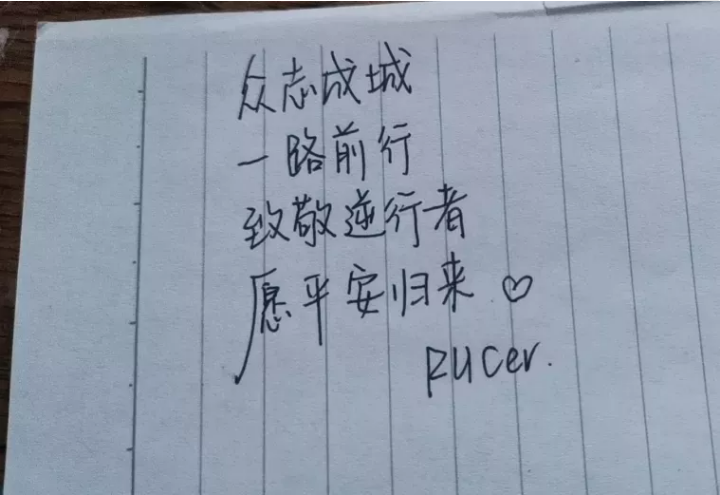 众志成城
一路前行
致敬逆行者
愿平安归来♡
RUCer.